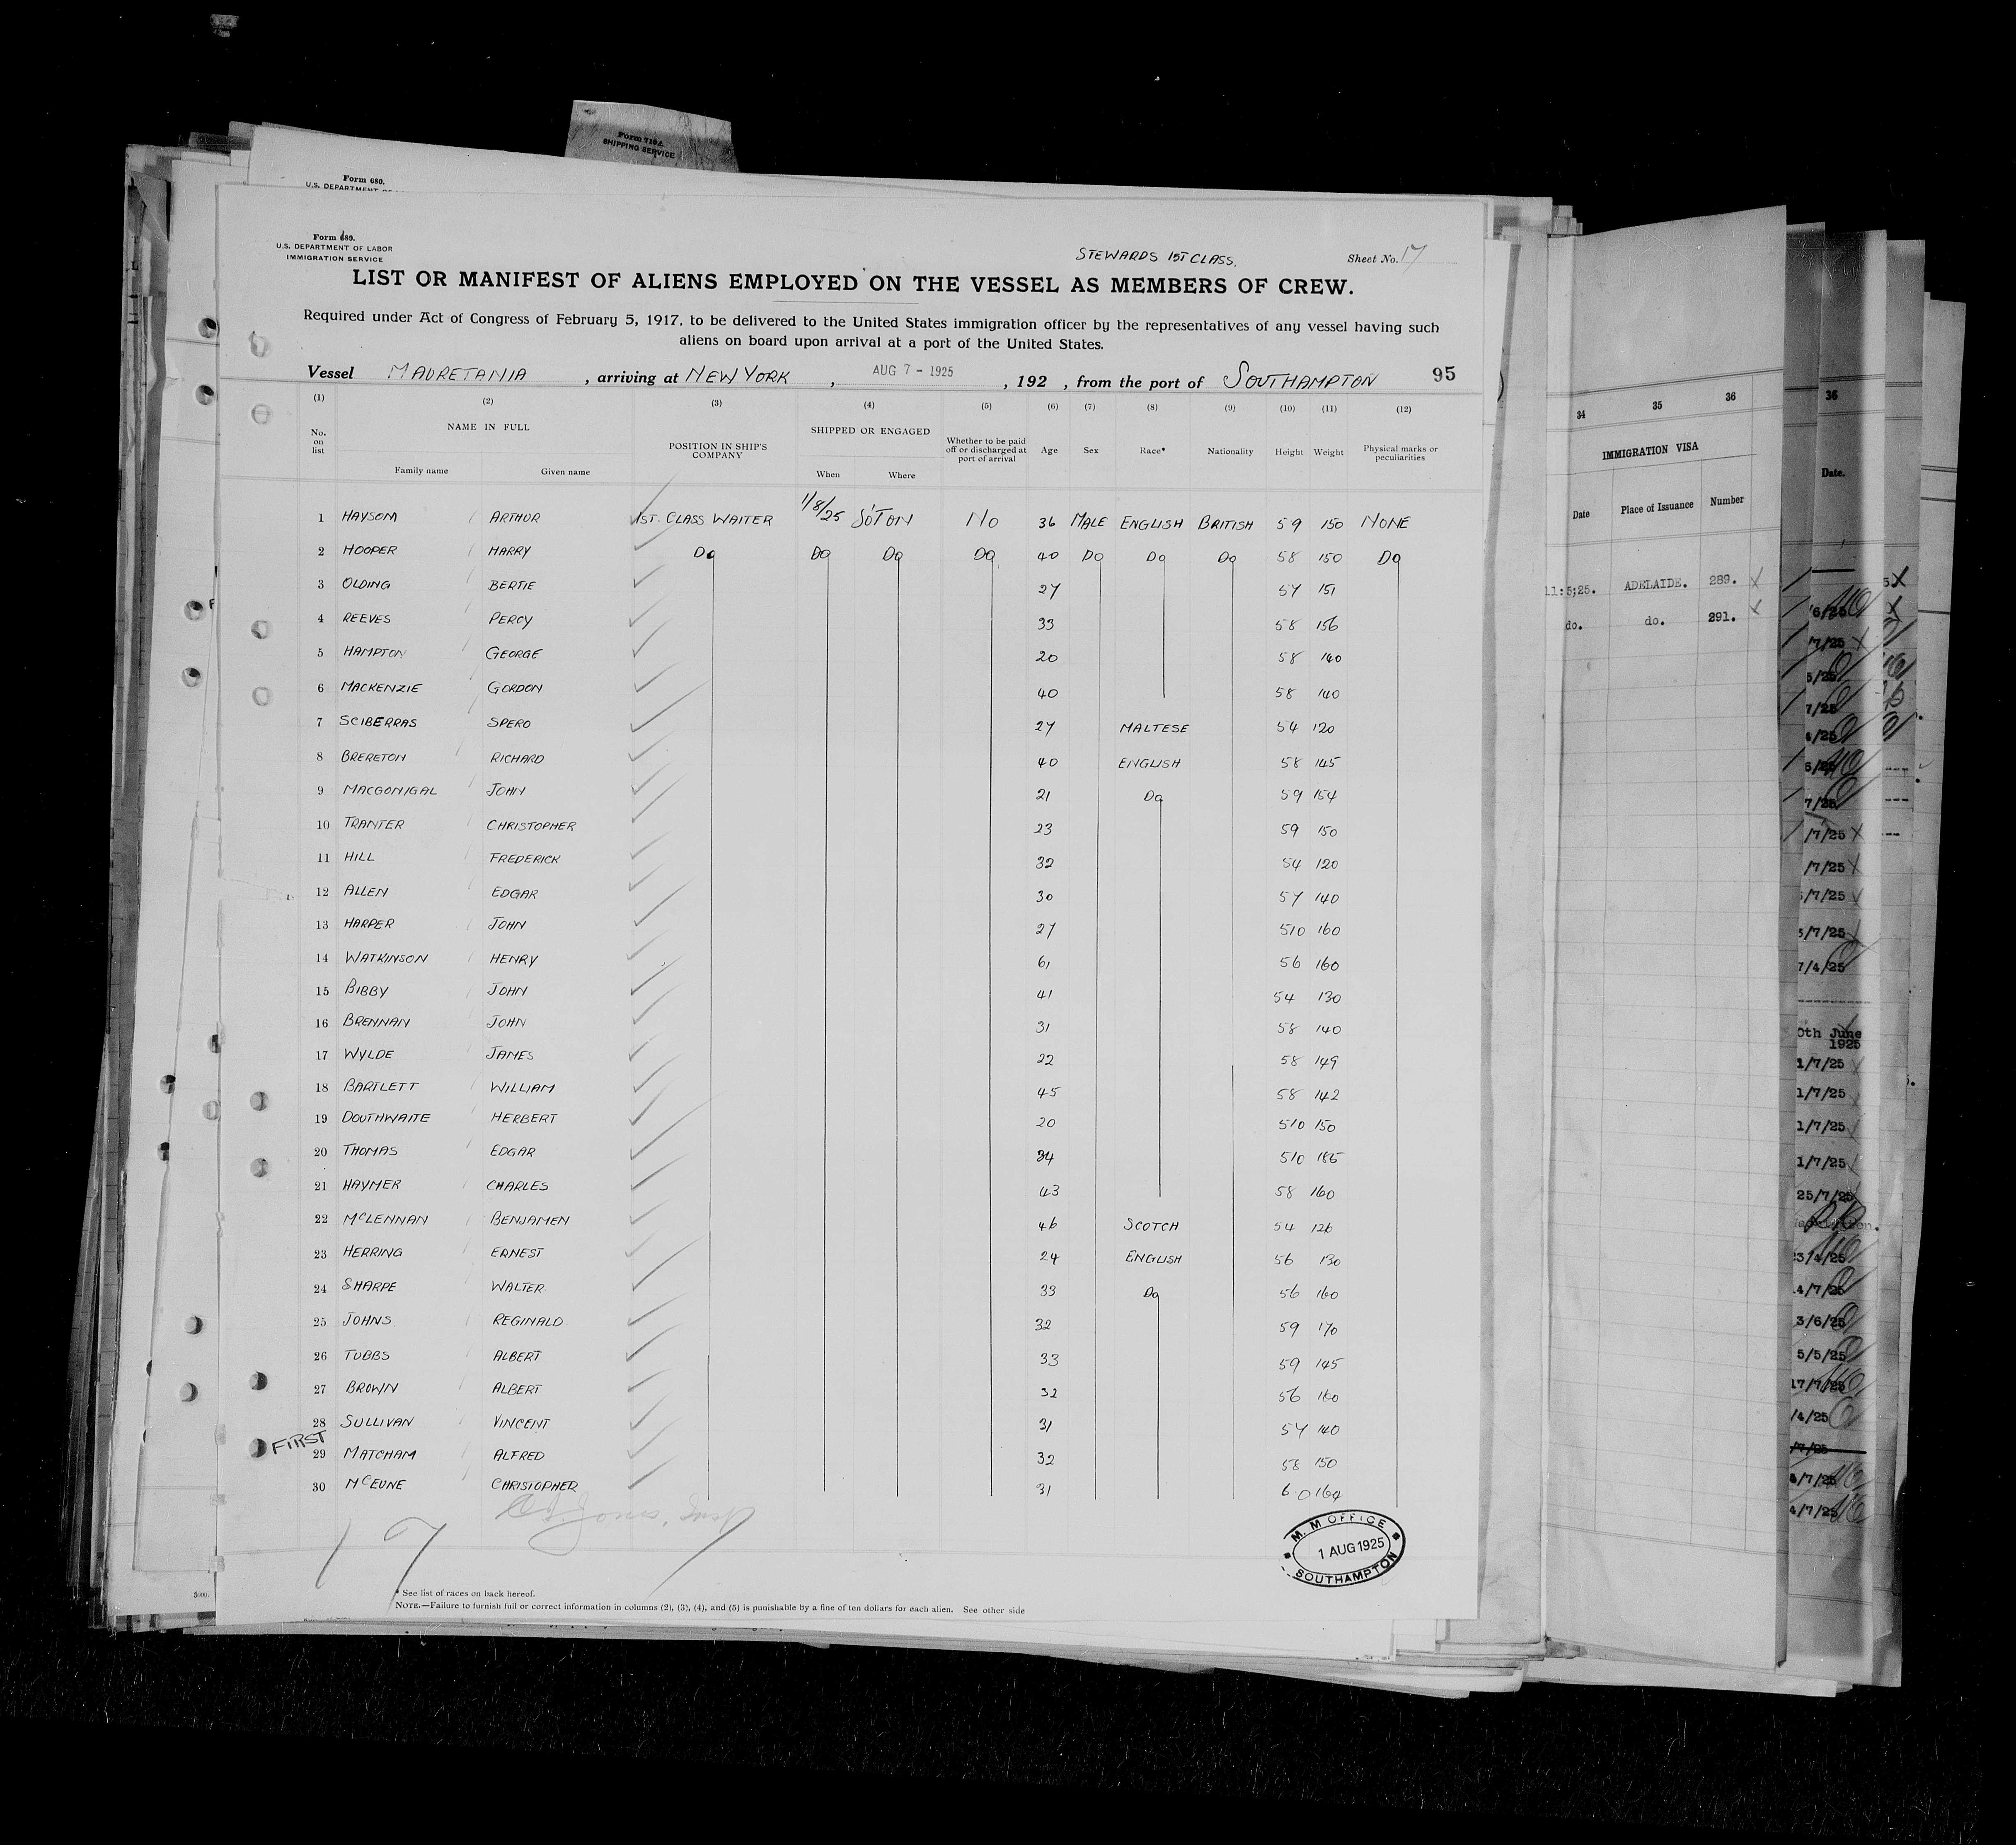 Form 710A.
SHIPPING SERVICE
Form 680.
U.S. DEPARTMENT OF
Form 680.
U.S. DEPARTMENT OF LABOR
IMMIGRATION SERVICE
STEWARDS 1ST CLASS.
Sheet No. 17
LIST OR MANIFEST OF ALIENS EMPLOYED ON THE VESSEL AS MEMBERS OF CREW.
Required under Act of Congress of February 5, 1917, to be delivered to the United States immigration officer by the representatives of any vessel having such
aliens on board upon arrival at a port of the United States.
Vessel MAURETANIA, arriving at NEW YORK, AUG 7 - 1925, 192 , from the port of SOUTHAMPTON 95
(1) (2) (3) (4) (5) (6) (7) (8) (9) (10) (11) (12)
No. on list NAME IN FULL Family name Given name POSITION IN SHIP'S COMPANY SHIPPED OR ENGAGED When Where Whether to be paid off or discharged at port of arrival Age Sex Race* Nationality Height Weight Physical marks or peculiarities
1 HAYSOM ARTHUR 1ST. CLASS WAITER 1/8/25 S'TON NO 36 MALE ENGLISH BRITISH 59 150 NONE
2 HOOPER HARRY Do Do Do Do 40 Do Do Do 58 150 Do
3 OLDING BERTIE 27 57 151
4 REEVES PERCY 33 58 156
5 HAMPTON GEORGE 20 58 140
6 MACKENZIE GORDON 40 58 140
7 SCIBERRAS SPERO 27 MALTESE 54 120
8 BRERETON RICHARD 40 ENGLISH 58 145
9 MACGONIGAL JOHN 21 Do 59 154
10 TRANTER CHRISTOPHER 23 59 150
11 HILL FREDERICK 32 54 120
12 ALLEN EDGAR 30 57 140
13 HARPER JOHN 27 510 160
14 WATKINSON HENRY 61 56 160
15 BIBBY JOHN 41 54 130
16 BRENNAN JOHN 31 58 140
17 WYLDE JAMES 22 58 149
18 BARTLETT WILLIAM 45 58 142
19 DOUTHWAITE HERBERT 20 510 150
20 THOMAS EDGAR 34 510 185
21 HAYMER CHARLES 43 58 160
22 McLENNAN BENJAMEN 46 SCOTCH 54 126
23 HERRING ERNEST 24 ENGLISH 56 130
24 SHARPE WALTER 33 Do 56 160
25 JOHNS REGINALD 32 59 170
26 TUBBS ALBERT 33 59 145
27 BROWN ALBERT 32 56 160
28 SULLIVAN VINCENT 31 57 140
FIRST
29 MATCHAM ALFRED 32 58 150
30 McEUNE CHRISTOPHER 31 6.0 164
17
M. M OFFICE
1 AUG 1925
SOUTHAMPTON
* See list of races on back hereof.
NOTE.—Failure to furnish full or correct information in columns (2), (3), (4), and (5) is punishable by a fine of ten dollars for each alien. See other side
5000.
34 35 36
IMMIGRATION VISA
Date Place of Issuance Number
11:5;25. ADELAIDE. 289.
do. do. 291.
36
Date.
/6/25
/7/25
5/25
7/25
4/25
5/25
7/25
/7/25
/7/25
/7/25
3/7/25
7/4/25
0th June
1925
1/7/25
1/7/25
1/7/25
1/7/25
25/7/25
23/4/25
4/7/25
3/6/25
5/5/25
17/7/25
/4/25
/7/25
4/7/25
4/7/25